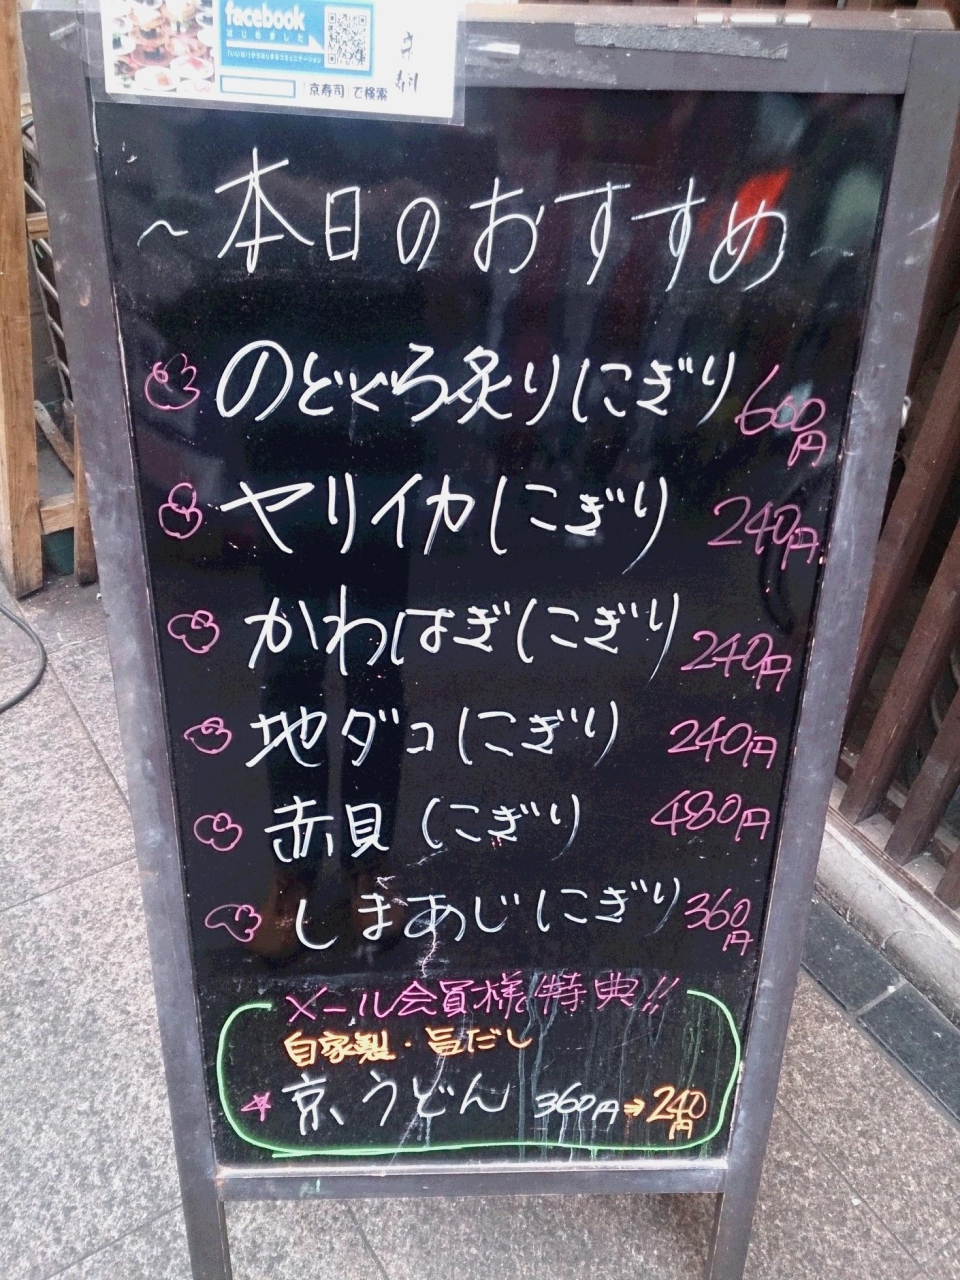 facebook
はじめました
「いいね!」からはじまるコミュニケーション
京寿司 で検索
京寿司
~本日のおすすめ
のどぐろ炙りにぎり 600円
ヤリイカにぎり 240円
かわはぎにぎり 240円
地ダコにぎり 240円
赤貝にぎり 480円
しまあじにぎり 360円
メール会員様特典!!
自家製・旨だし
京うどん 360円⇒240円